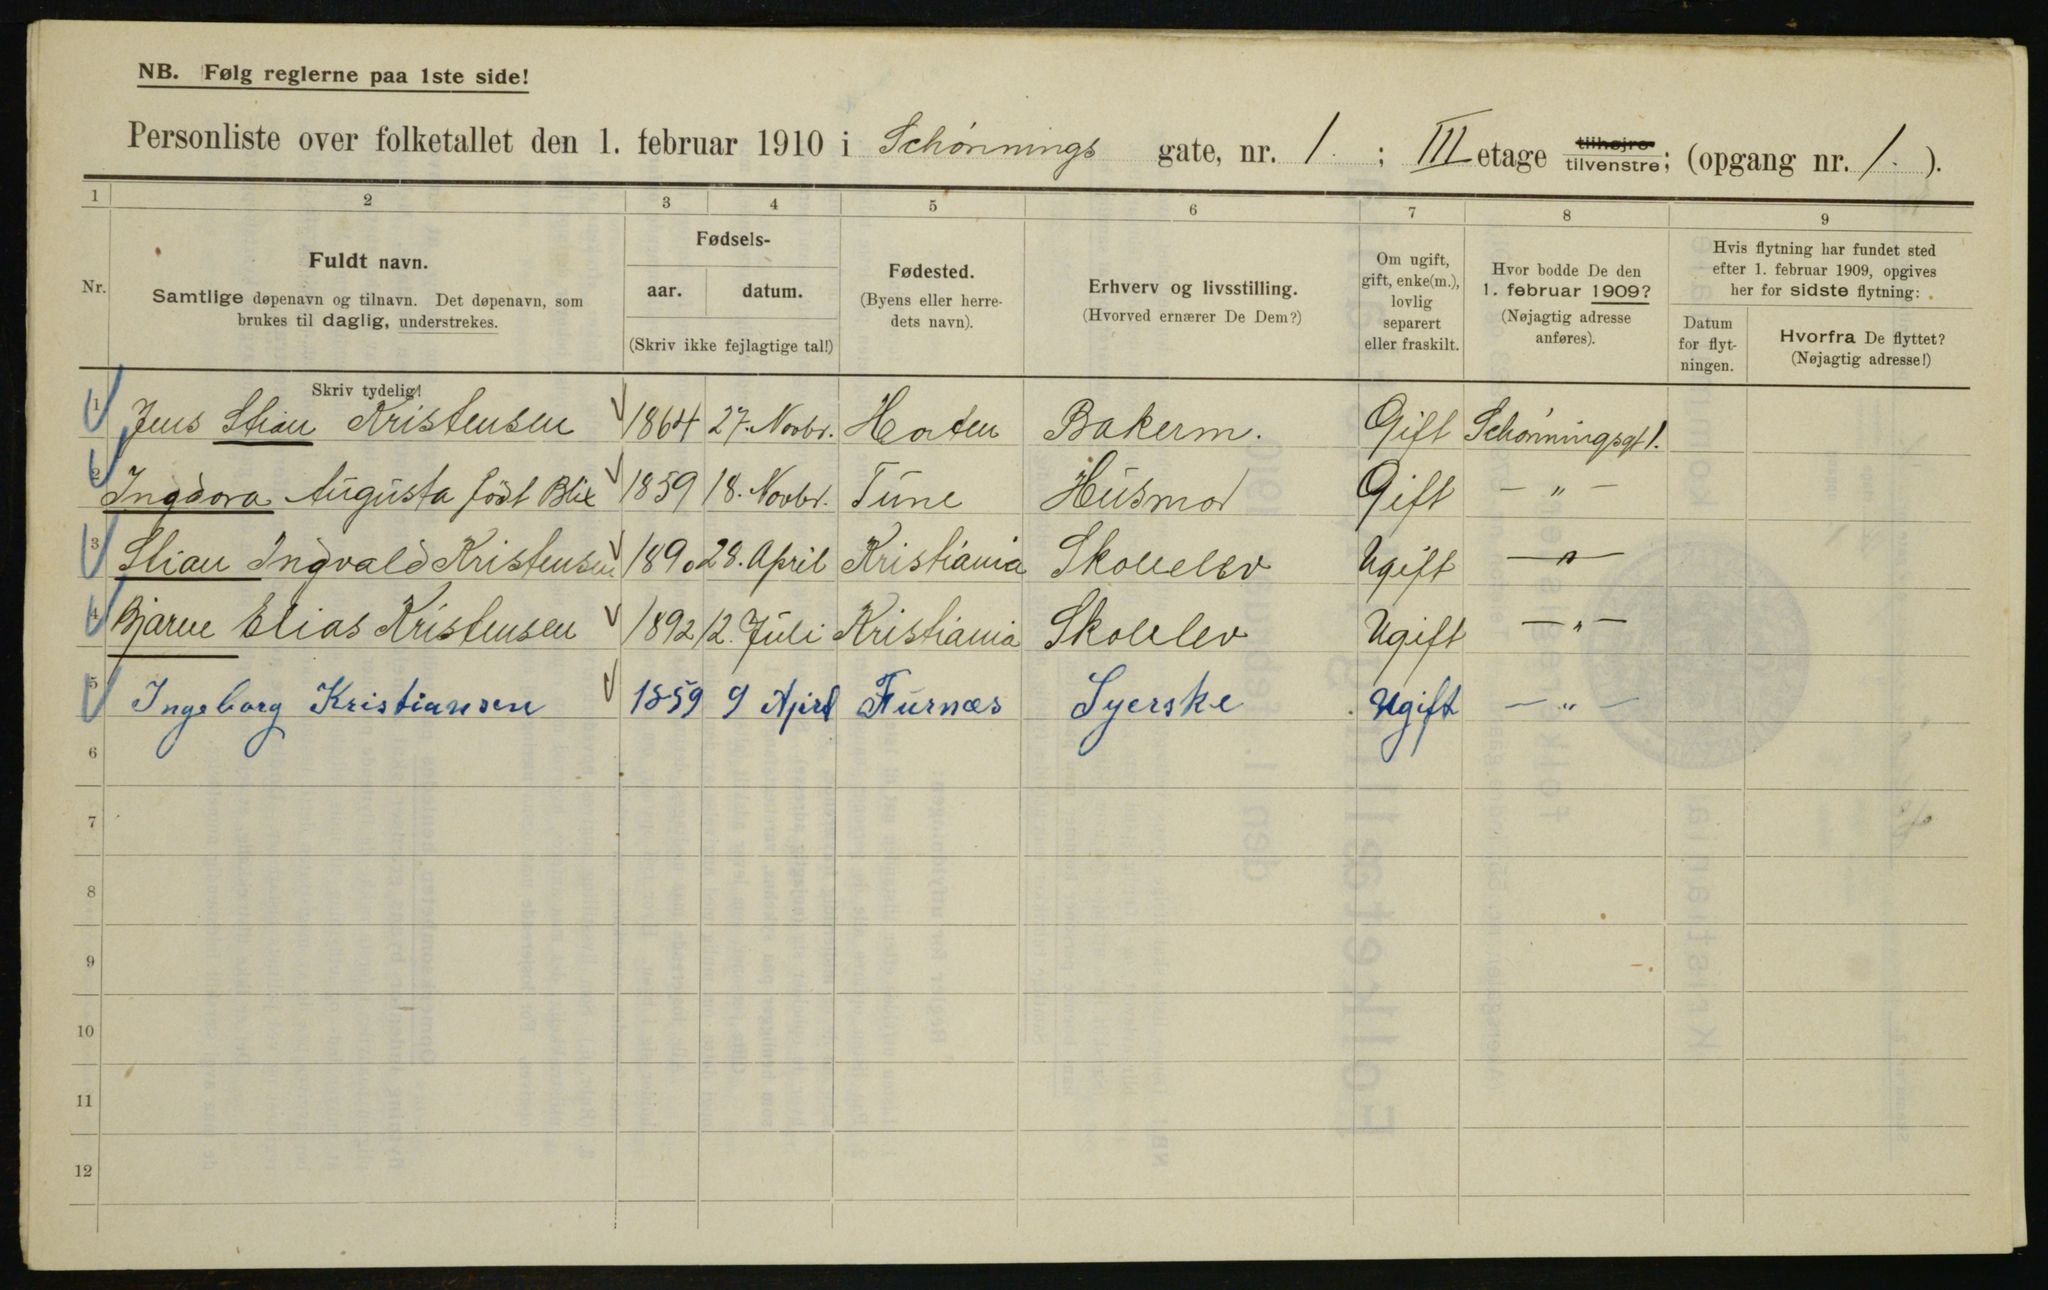 NB. Følg reglerne paa 1ste side!
Personliste over folketallet den 1. februar 1910 i Schønnings gate, nr. 1. ; III etage tilhøjre tilvenstre; (opgang nr. 1. ).
1 2 3 4 5 6 7 8 9
Nr.
Fuldt navn.
Samtlige døpenavn og tilnavn. Det døpenavn, som
brukes til daglig, understrekes.
Skriv tydelig!
Fødsels-
aar. datum.
(Skriv ikke fejlagtige tal!)
Fødested.
(Byens eller herre-
dets navn).
Erhverv og livsstilling.
(Hvorved ernærer De Dem?)
Om ugift,
gift, enke(m.),
lovlig
separert
eller fraskilt.
Hvor bodde De den
1. februar 1909?
(Nøjagtig adresse
anføres).
Hvis flytning har fundet sted
efter 1. februar 1909, opgives
her for sidste flytning:
Datum
for flyt-
ningen.
Hvorfra De flyttet?
(Nøjagtig adresse!)
1 Jens Stian Kristensen 1864 27. Novbr. Horten Bakerm. Gift Schønningsgt 1.
2 Ingdora Augusta født Blix 1859 18. Novbr. Tune Husmor Gift — " —
3 Stian Ingvald Kristensen 1890 28. April Kristiania Skoleelev Ugift — " —
4 Bjarne Elias Kristensen 1892 12. Juli Kristiania Skoleelev Ugift — " —
5 Ingeborg Kristiansen 1859 9 April Furnæs Syerske Ugift — " —
6
7
8
9
10
11
12